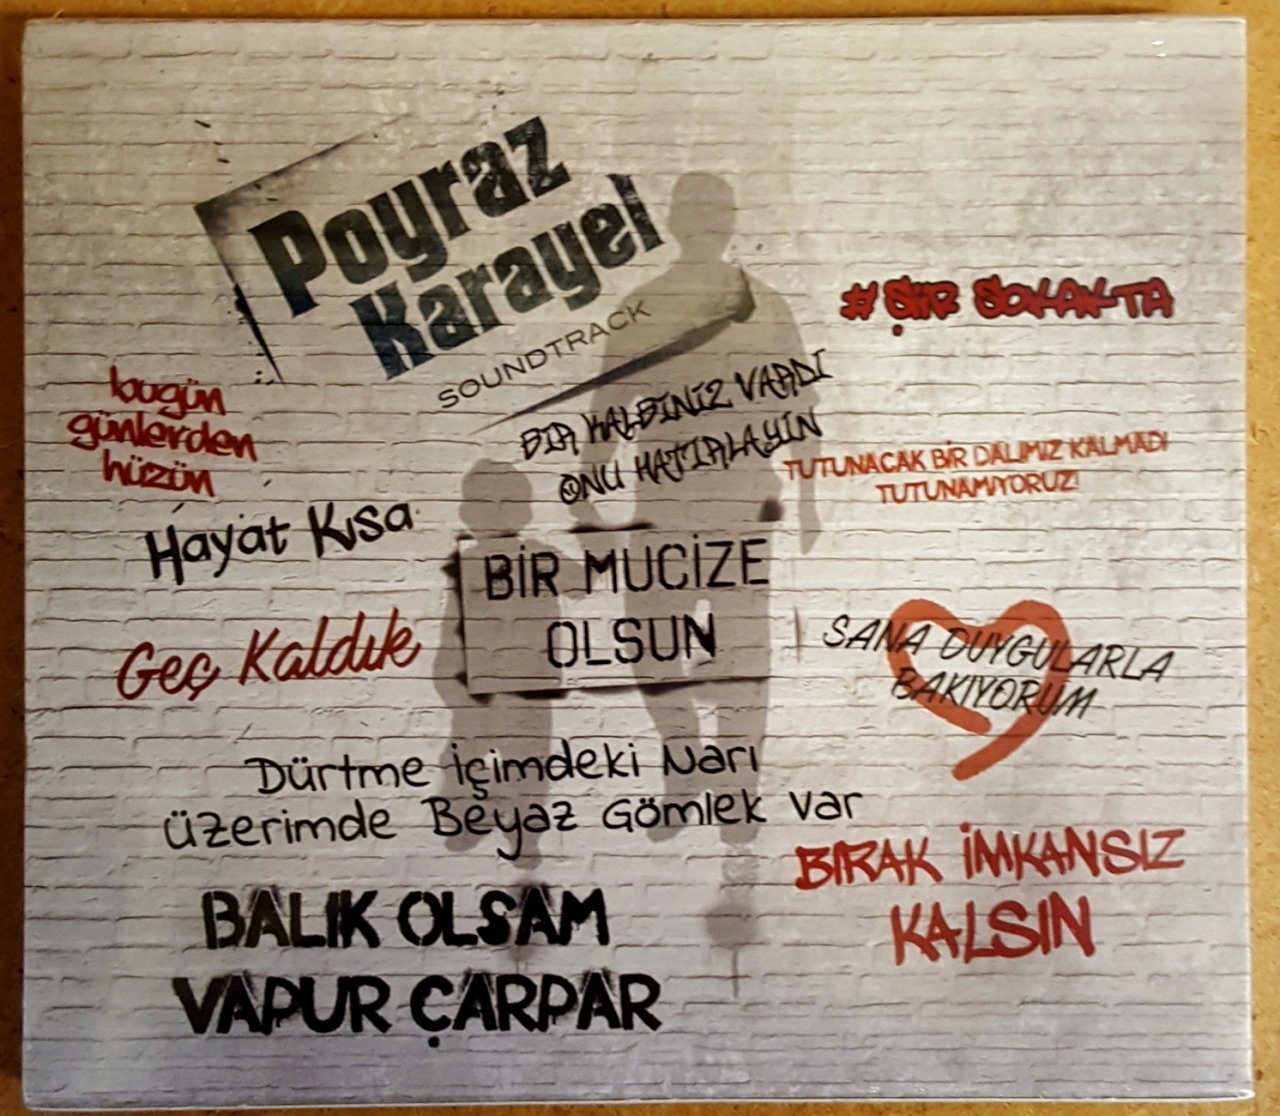 Poyraz
Karayel
SOUNDTRACK
# ŞİİR SOKAKTA
bugün
günlerden
hüzün
BİR KALBİNİZ VARDI
ONU HATIRLAYIN
TUTUNACAK BİR DALIMIZ KALMADI
TUTUNAMIYORUZ!
Hayat Kısa
BİR MUCİZE
OLSUN
Geç Kaldık
SANA DUYGULARLA
BAKIYORUM
Dürtme içimdeki Narı
üzerimde Beyaz Gömlek var
BIRAK İMKANSIZ
KALSIN
BALIK OLSAM
VAPUR ÇARPAR